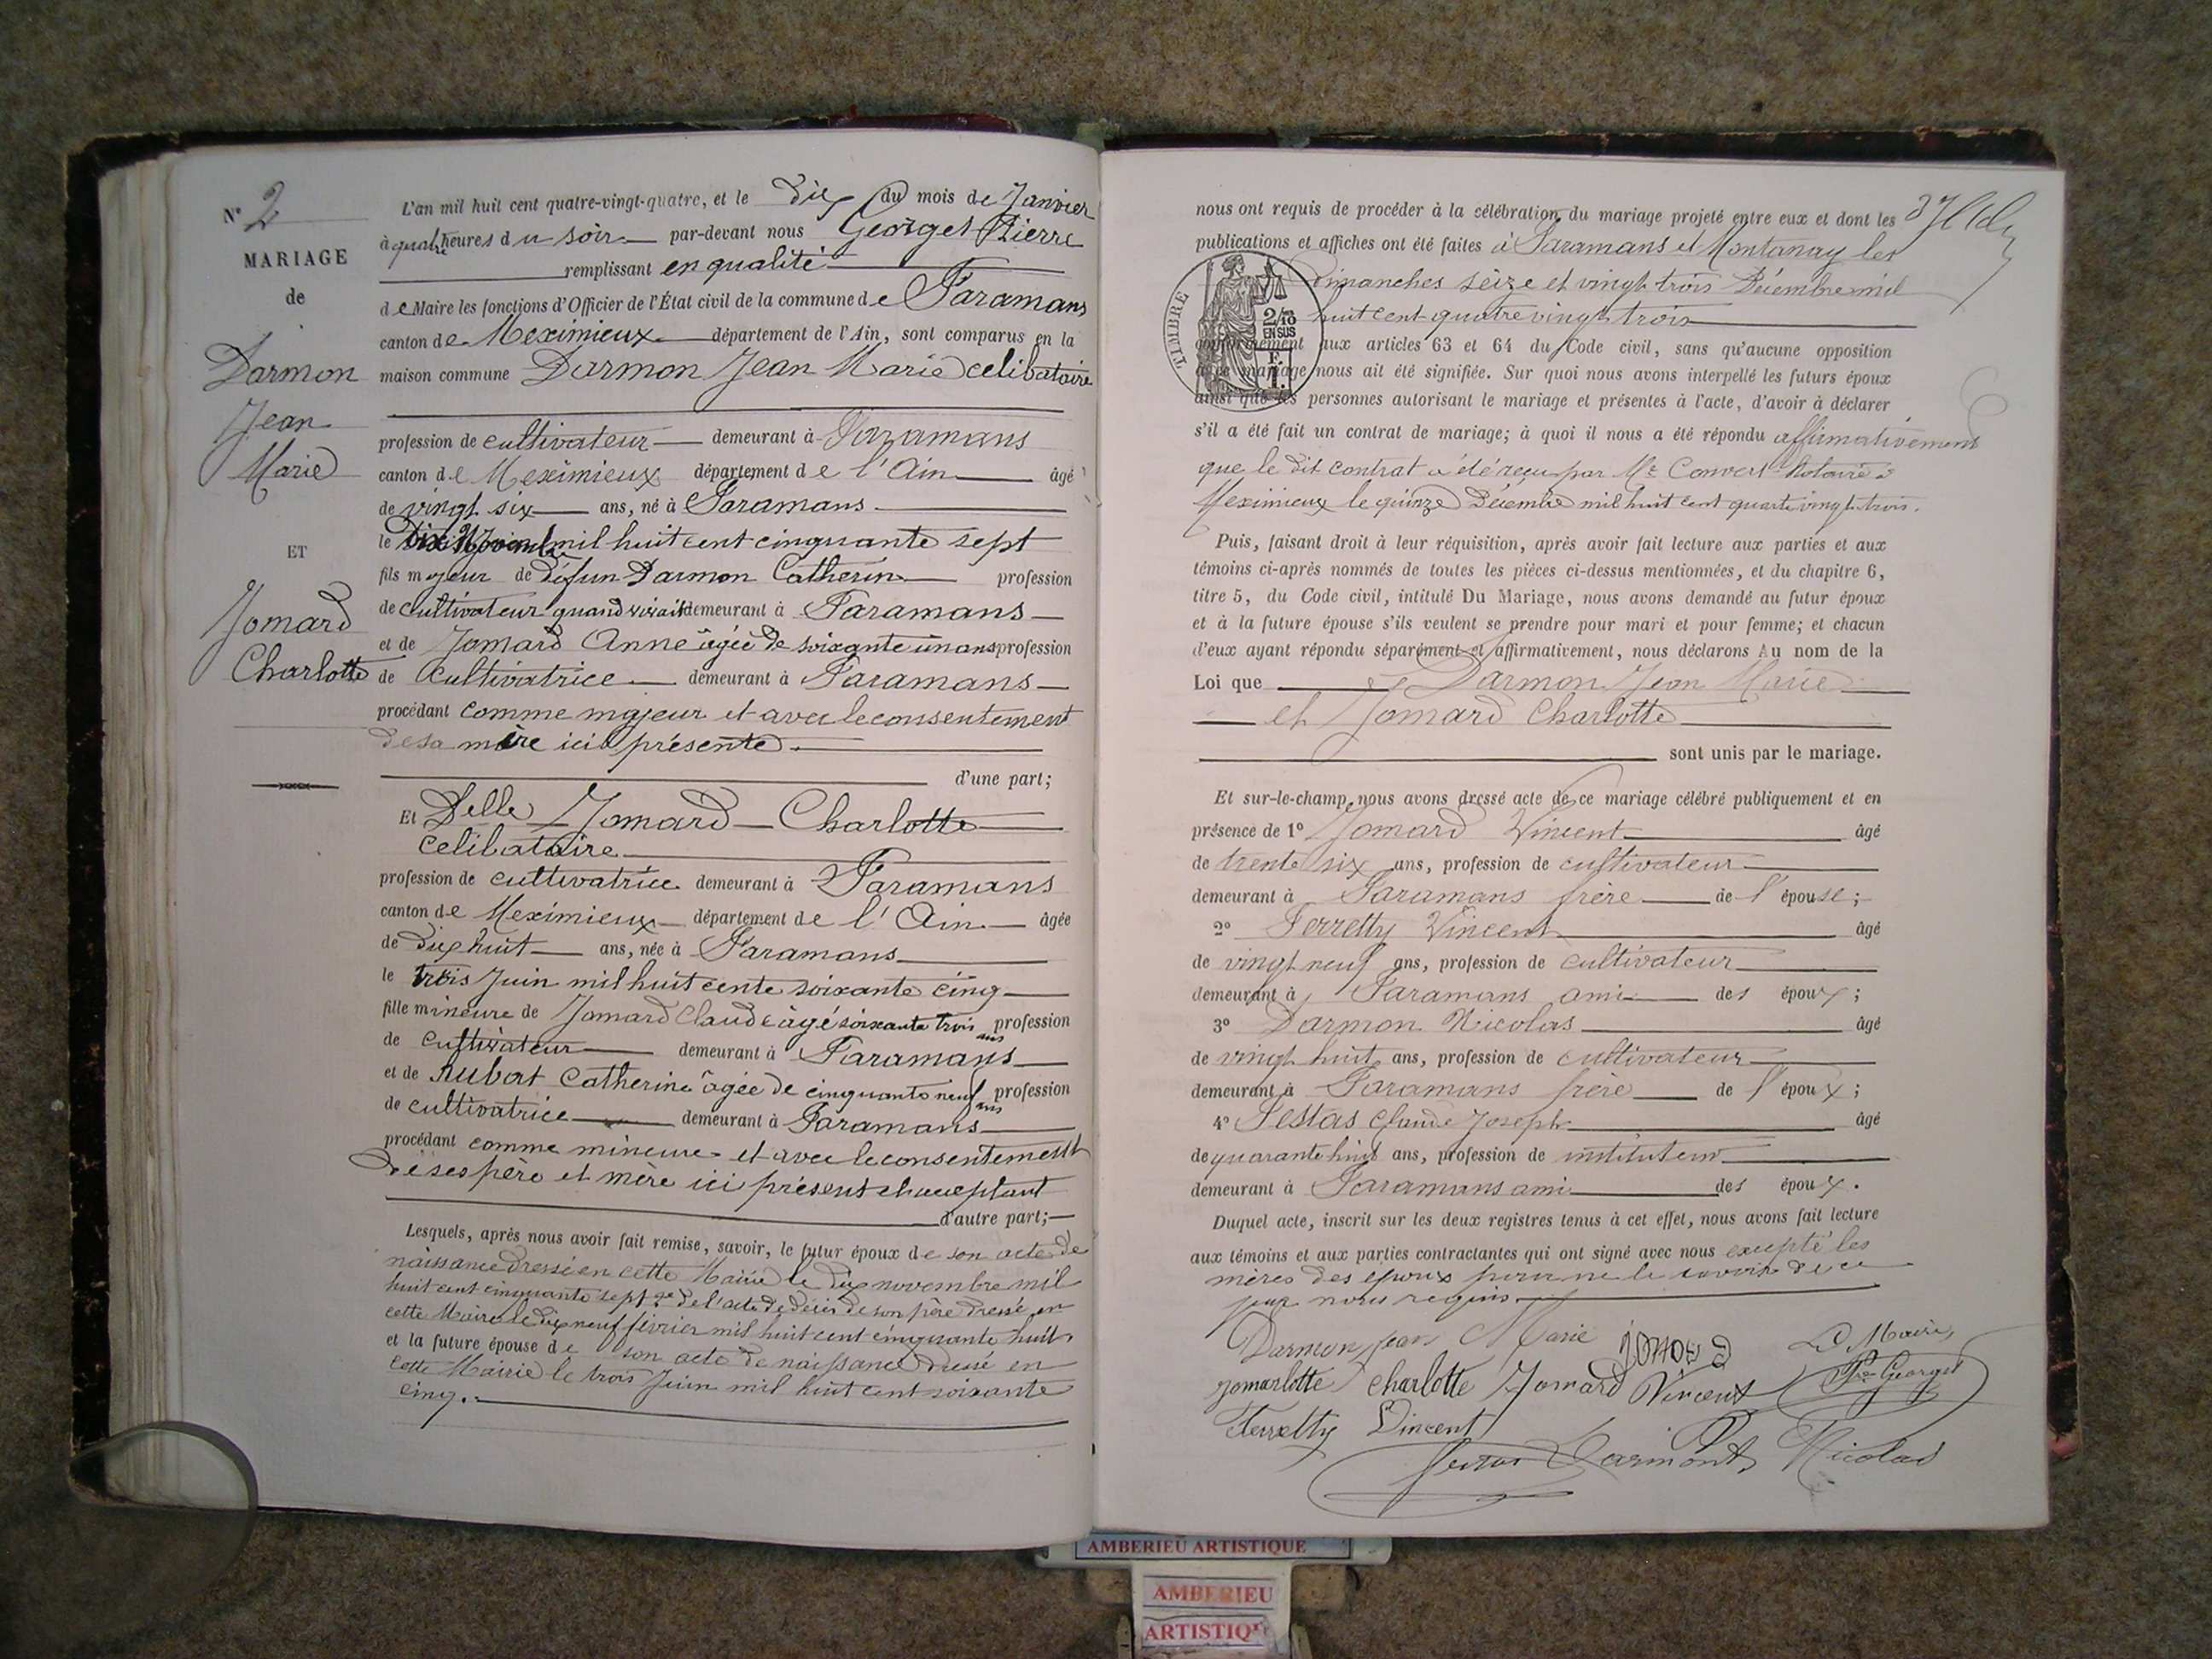 N° 2
MARIAGE
de
Darmon
Jean
Marie
ET
Jomard
Charlotte
L'an mil huit cent quatre-vingt-quatre, et le dix du mois de Janvier
à quatre heures du soir par-devant nous Georget Pierre
remplissant en qualité
de Maire les fonctions d'Officier de l'État civil de la commune de Faramans
canton de Meximieux département de l'Ain, sont comparus en la
maison commune Darmon Jean Marie celibataire
profession de cultivateur demeurant à Faramans
canton de Meximieux département de l'Ain âgé
de vingt six ans, né à Faramans
le Dix Novembre mil huit cent cinquante sept
fils majeur de défun Darmon Catherin profession
de cultivateur quand vivait demeurant à Faramans
et de Jomard Anne âgée de soixante un ans profession
de Cultivatrice demeurant à Faramans
procédant comme majeur et avec le consentement
de sa mère ici présente.
d'une part;
Et Delle Jomard Charlotte
celibataire
profession de cultivatrice demeurant à Faramans
canton de Meximieux département de l'Ain âgée
de dix huit ans, née à Faramans
le trois Juin mil huit cente soixante cinq
fille mineure de Jomard Claude âgé soixante trois ans profession
de cultivateur demeurant à Faramans
et de Aubert Catherine âgée de cinquante neuf ans profession
de cultivatrice demeurant à Faramans
procédant comme mineure et avec le consentement
de ses père et mère ici présent et acceptant
d'autre part;
Lesquels, après nous avoir fait remise, savoir, le futur époux de son acte de
naissance dressé en cette Mairie le dix novembre mil
huit cent cinquante sept 2e de l'acte de décès de son père dressé en
cette Mairie le dix neuf février mil huit cent cinquante huit
et la future épouse de son acte de naissance dressé en
cette Mairie le trois Juin mil huit cent soixante
cinq.
nous ont requis de procéder à la célébration du mariage projeté entre eux et dont les
publications et affiches ont été faites à Faramans et Montanay les
TIMBRE
2/10
EN SUS
Dimanches seize et vingt trois Décembre mil
huit cent quatre vingt trois
conformément aux articles 63 et 64 du Code civil, sans qu'aucune opposition
à ce mariage nous ait été signifiée. Sur quoi nous avons interpellé les futurs époux
ainsi que les personnes autorisant le mariage et présentes à l'acte, d'avoir à déclarer
s'il a été fait un contrat de mariage; à quoi il nous a été répondu affirmativement
que le dit contrat a été reçu par Me Convert Notaire à
Meximieux le quinze Décembre mil huit cent quatre vingt trois.
Puis, faisant droit à leur réquisition, après avoir fait lecture aux parties et aux
témoins ci-après nommés de toutes les pièces ci-dessus mentionnées, et du chapitre 6,
titre 5, du Code civil, intitulé Du Mariage, nous avons demandé au futur époux
et à la future épouse s'ils veulent se prendre pour mari et pour femme; et chacun
d'eux ayant répondu séparément et affirmativement, nous déclarons Au nom de la
Loi que Darmon Jean Marie
et Jomard Charlotte
sont unis par le mariage.
Et sur-le-champ nous avons dressé acte de ce mariage célébré publiquement et en
présence de 1° Jomard Vincent âgé
de trente six ans, profession de cultivateur
demeurant à Faramans frère de l'épouse;
2° Ferretty Vincent âgé
de vingt neuf ans, profession de cultivateur
demeurant à Faramans ami des époux;
3° Darmon Nicolas âgé
de vingt huit ans, profession de cultivateur
demeurant à Faramans frère de l'époux;
4° Sestas Claude Joseph âgé
de quarante huit ans, profession de instituteur
demeurant à Faramans ami des époux.
Duquel acte, inscrit sur les deux registres tenus à cet effet, nous avons fait lecture
aux témoins et aux parties contractantes qui ont signé avec nous excepté les
mères des époux pour ne le savoir de ce
par nous requis
Darmon jean Marie jomard Le Maire,
jomarlotte charlotte Jomard Vincent Pre Georget
Ferretty Vincent
Darmont Nicolas
AMBERIEU ARTISTIQUE
AMBERIEU
ARTISTIQU